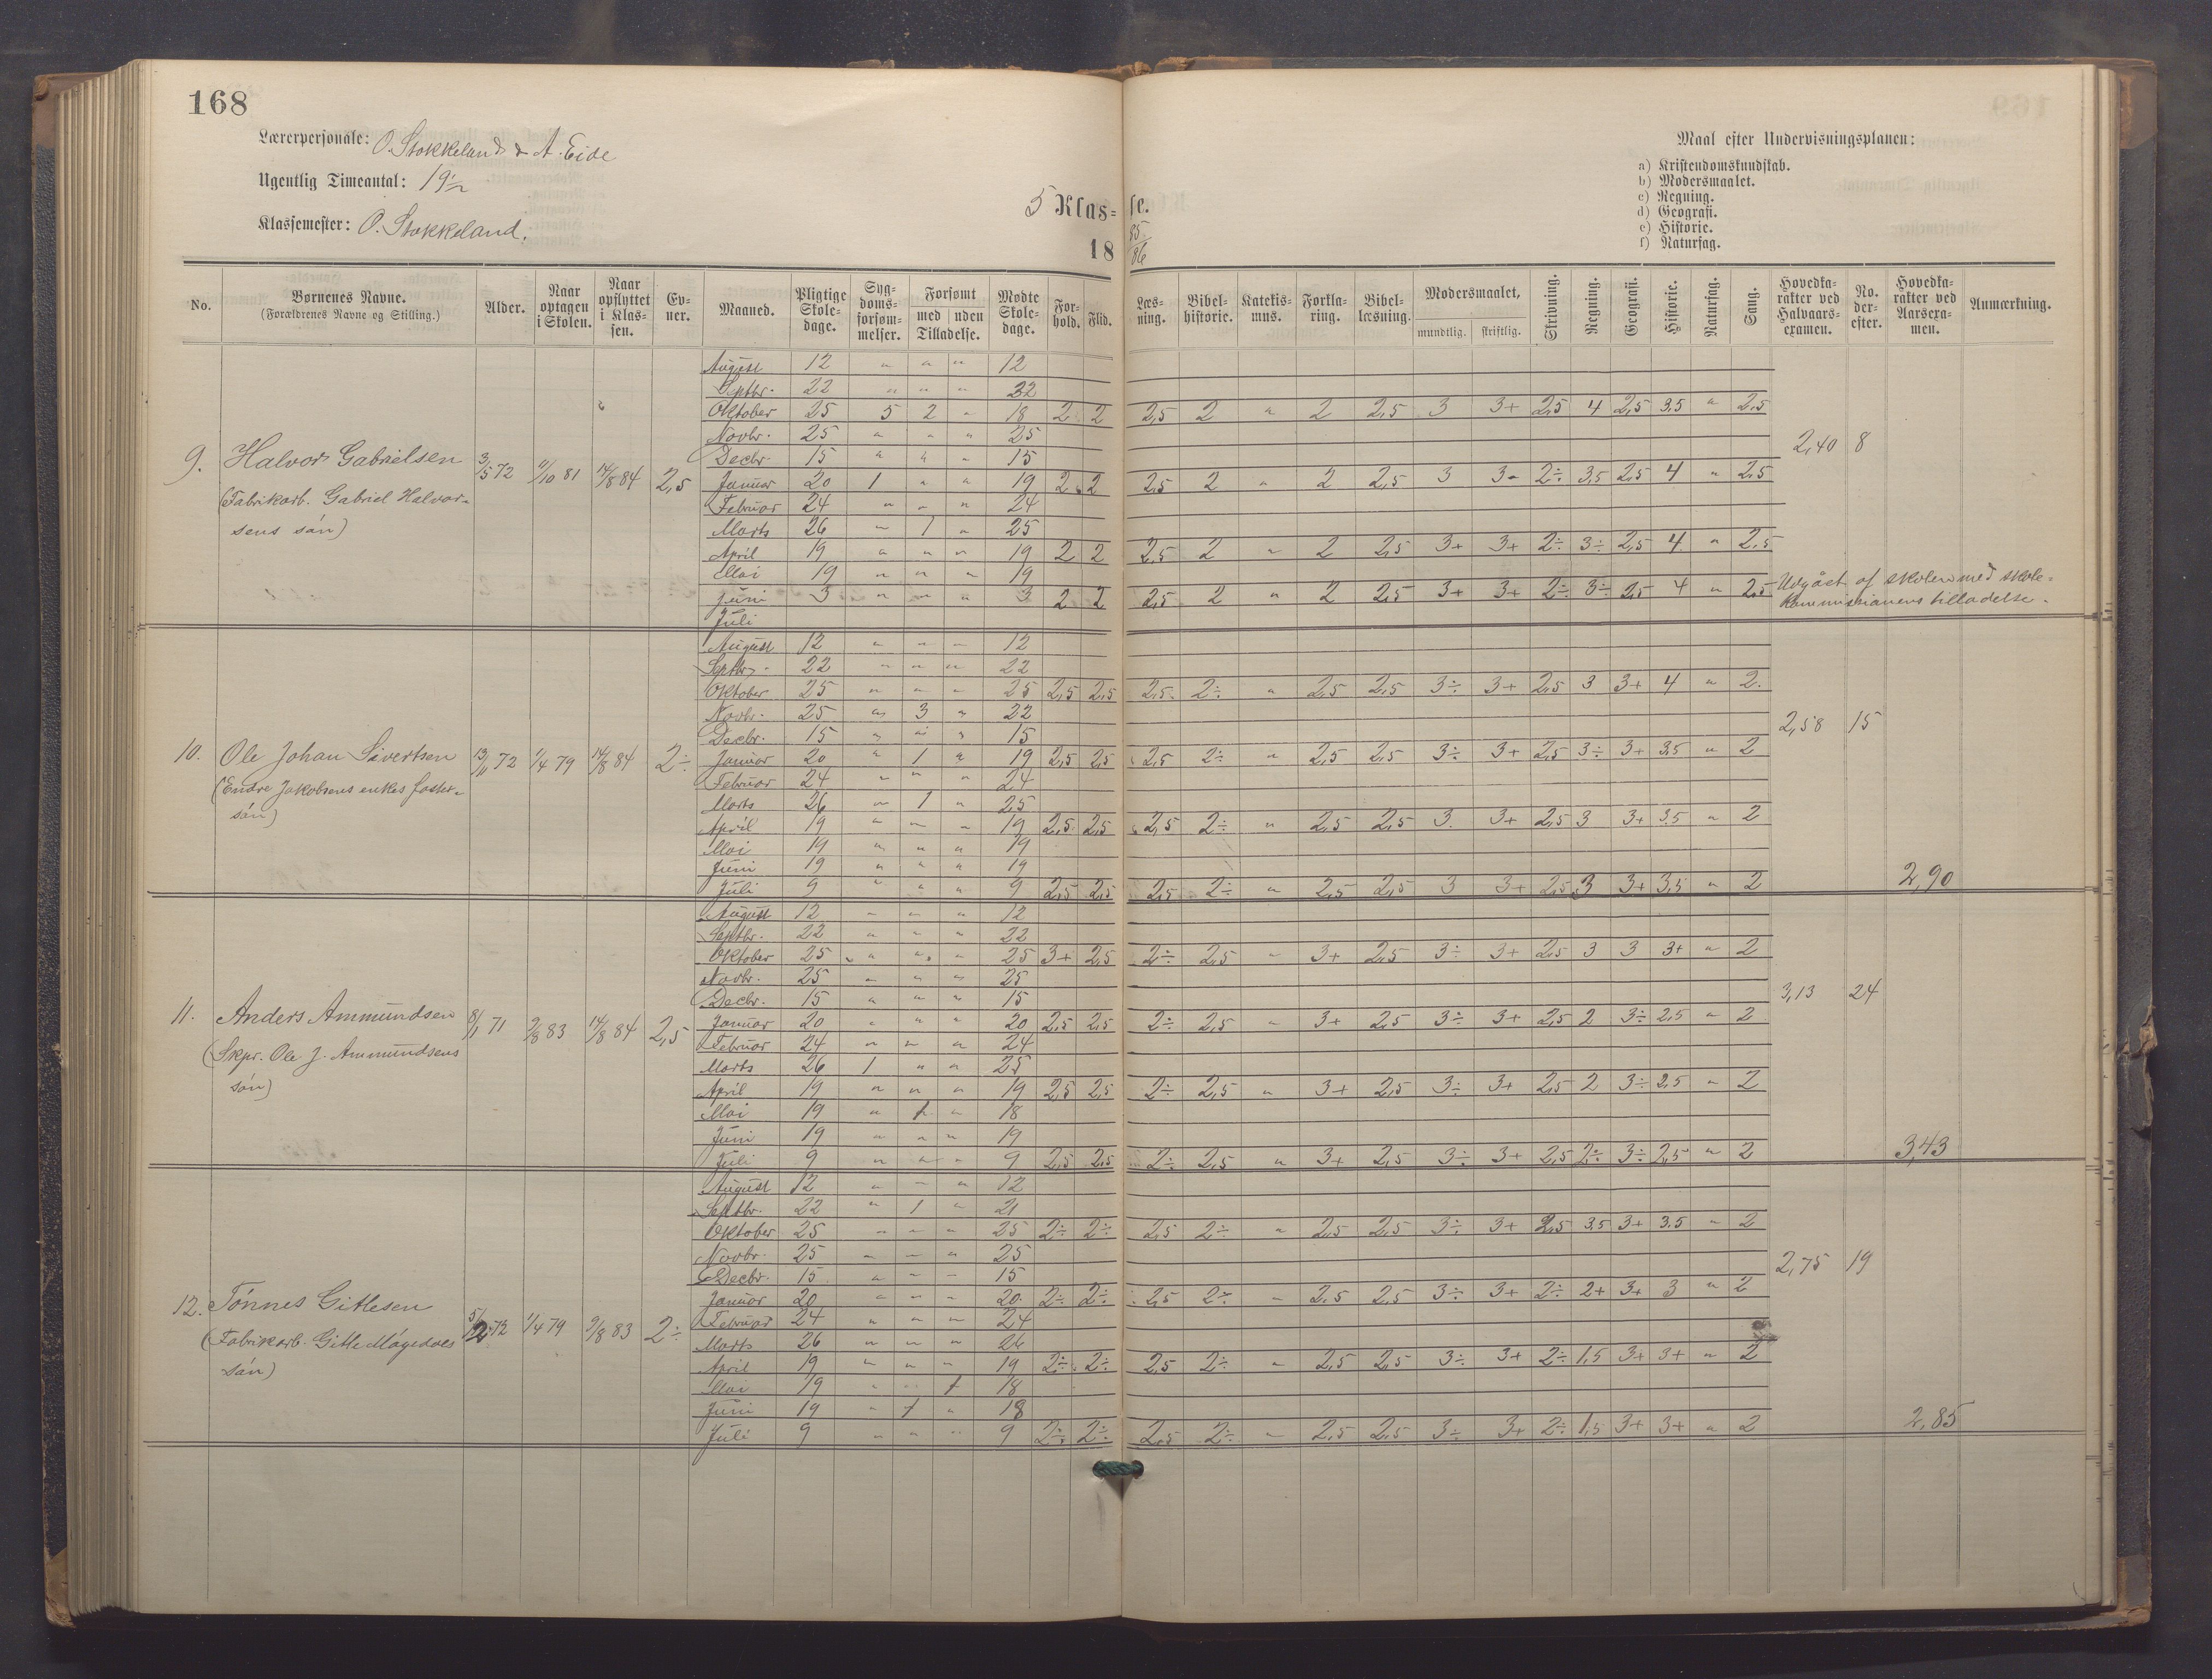 168
Lærerpersonale: O. Stokkeland & A. Eide
Ugentlig Timeantal: 19½
Klassemester: O. Stokkeland.
5 Klas= se.
18 85/86
Maal efter Undervisningsplanen:
a) Kristendomskundskab.
b) Modersmaalet.
c) Regning.
d) Geografi.
e) Historie.
f) Naturfag.
No. | Børnenes Navne. (Forældrenes Navne og Stilling.) | Alder. | Naar optagen i Skolen. | Naar opflyttet i Klas-sen. | Ev-ner. | Maaned. | Pligtige Skole-dage. | Syg-doms-forsøm-melser. | Forsømt med | uden Tilladelse. | Mødte Skole-dage. | For-hold. | Flid. | Læs-ning. | Bibel-historie. | Katekis-mus. | Forkla-ring. | Bibel-læsning. | Modersmaalet, mundtlig. | skriftlig. | Skrivning. | Regning. | Geografi. | Historie. | Naturfag. | Sang. | Hovedka-rakter ved Halvaars-examen. | No. der-efter. | Hovedka-rakter ved Aarsexa-men. | Anmærkning.
9. Halvor Gabrielsen 3/5 72 11/10 81 14/8 84 2,5
(Fabrikarb. Gabriel Halvor-
sens søn)
August 12 " " " 12
Septbr. 22 " " " 22
Oktober 25 5 2 " 18 2 2 2,5 2 " 2 2,5 3 3+ 2,5 4 2,5 3,5 " 2,5
Novbr. 25 " " " 25
2,40 8
Decbr. 15 " " " 15
Januar 20 1 " " 19 2 2 2,5 2 " 2 2,5 3 3- 2÷ 3,5 2,5 4 " 2,5
Februar 24 " " " 24
Marts 26 " 1 " 25
April 19 " " " 19 2 2 2,5 2 " 2 2,5 3+ 3+ 2÷ 3÷ 2,5 4 " 2,5
Mai 19 " " " 19
Juni 3 " " " 3 2 2 2,5 2 " 2 2,5 3+ 3+ 2÷ 3÷ 2,5 4 " 2,5 Udgået af skolen med skole-
kommissionens tilladelse.
Juli
10. Ole Johan Sivertsen 13/11 72 1/4 79 14/8 84 2÷
(Endre Jakobsens enkes foster-
søn)
August 12 " " " 12
Septbr. 22 " " " 22
Oktober 25 " " " 25 2,5 2,5 2,5 2÷ " 2,5 2,5 3÷ 3+ 2,5 3 3+ 4 " 2.
Novbr. 25 " 3 " 22
2,58 15
Decbr. 15 " " " 15
Januar 20 " 1 " 19 2,5 2,5 2,5 2÷ " 2,5 2,5 3÷ 3+ 2,5 3÷ 3+ 3,5 " 2
Februar 24 " " " 24
Marts 26 " 1 " 25
April 19 " " " 19 2,5 2,5 2,5 2÷ " 2,5 2,5 3. 3+ 2,5 3 3+ 3,5 " 2
Mai 19 " " " 19
Juni 19 " " " 19
Juli 9 " " " 9 2,5 2,5 2,5 2÷ " 2,5 2,5 3 3+ 2,5 3 3+ 3,5 " 2 2,90
11. Anders Ammundsen 8/1 71 9/8 83 14/8 84 2,5
(Skpr. Ole J. Ammundsens
søn)
August 12 " " " 12
Septbr. 22 " " " 22
Oktober 25 " " " 25 3+ 2,5 2÷ 2,5 " 3+ 2,5 3÷ 3+ 2,5 3 3 3+ " 2
Novbr. 25 " " " 25
3,13 24
Decbr. 15 " " " 15
Januar 20 " " " 20 2,5 2,5 2÷ 2,5 " 3+ 2,5 3÷ 3+ 2,5 2 3÷ 2,5 " 2
Februar 24 " " " 24
Marts 26 1 " " 25
April 19 " " " 19 2,5 2,5 2÷ 2,5 " 3+ 2,5 3÷ 3+ 2,5 2 3÷ 2,5 " 2
Mai 19 " 1 " 18
Juni 19 " " " 19
Juli 9 " " " 9 2,5 2,5 2÷ 2,5 " 3+ 2,5 3÷ 3+ 2,5 2÷ 3÷ 2,5 " 2 3,43
12. Tönnes Gitlesen 72 1/4 79 9/8 83 2÷
(Fabrikarb. Gitle
søn)
August 12 " " " 12
Septbr. 22 " 1 " 21
Oktober 25 " " " 25 2÷ 2÷ 2,5 2÷ " 2,5 2,5 3÷ 3+ 2,5 3,5 3+ 3,5 " 2
Novbr. 25 " " " 25
2,75 19
Decbr. 15 " " " 15
Januar 20 " " " 20 2÷ 2÷ 2,5 2÷ " 2,5 2,5 3÷ 3+ 2÷ 2+ 3+ 3 " 2
Februar 24 " " " 24
Marts 26 " " " 26
April 19 " " " 19 2÷ 2÷ 2,5 2÷ " 2,5 2,5 3÷ 3+ 2÷ 1,5 3+ 3+ " 2
Mai 19 " " 1 18
Juni 19 " 1 " 18
Juli 9 " " " 9 2÷ 2÷ 2,5 2÷ " 2,5 2,5 3÷ 3+ 2÷ 1,5 3+ 3+ " 2 2,85